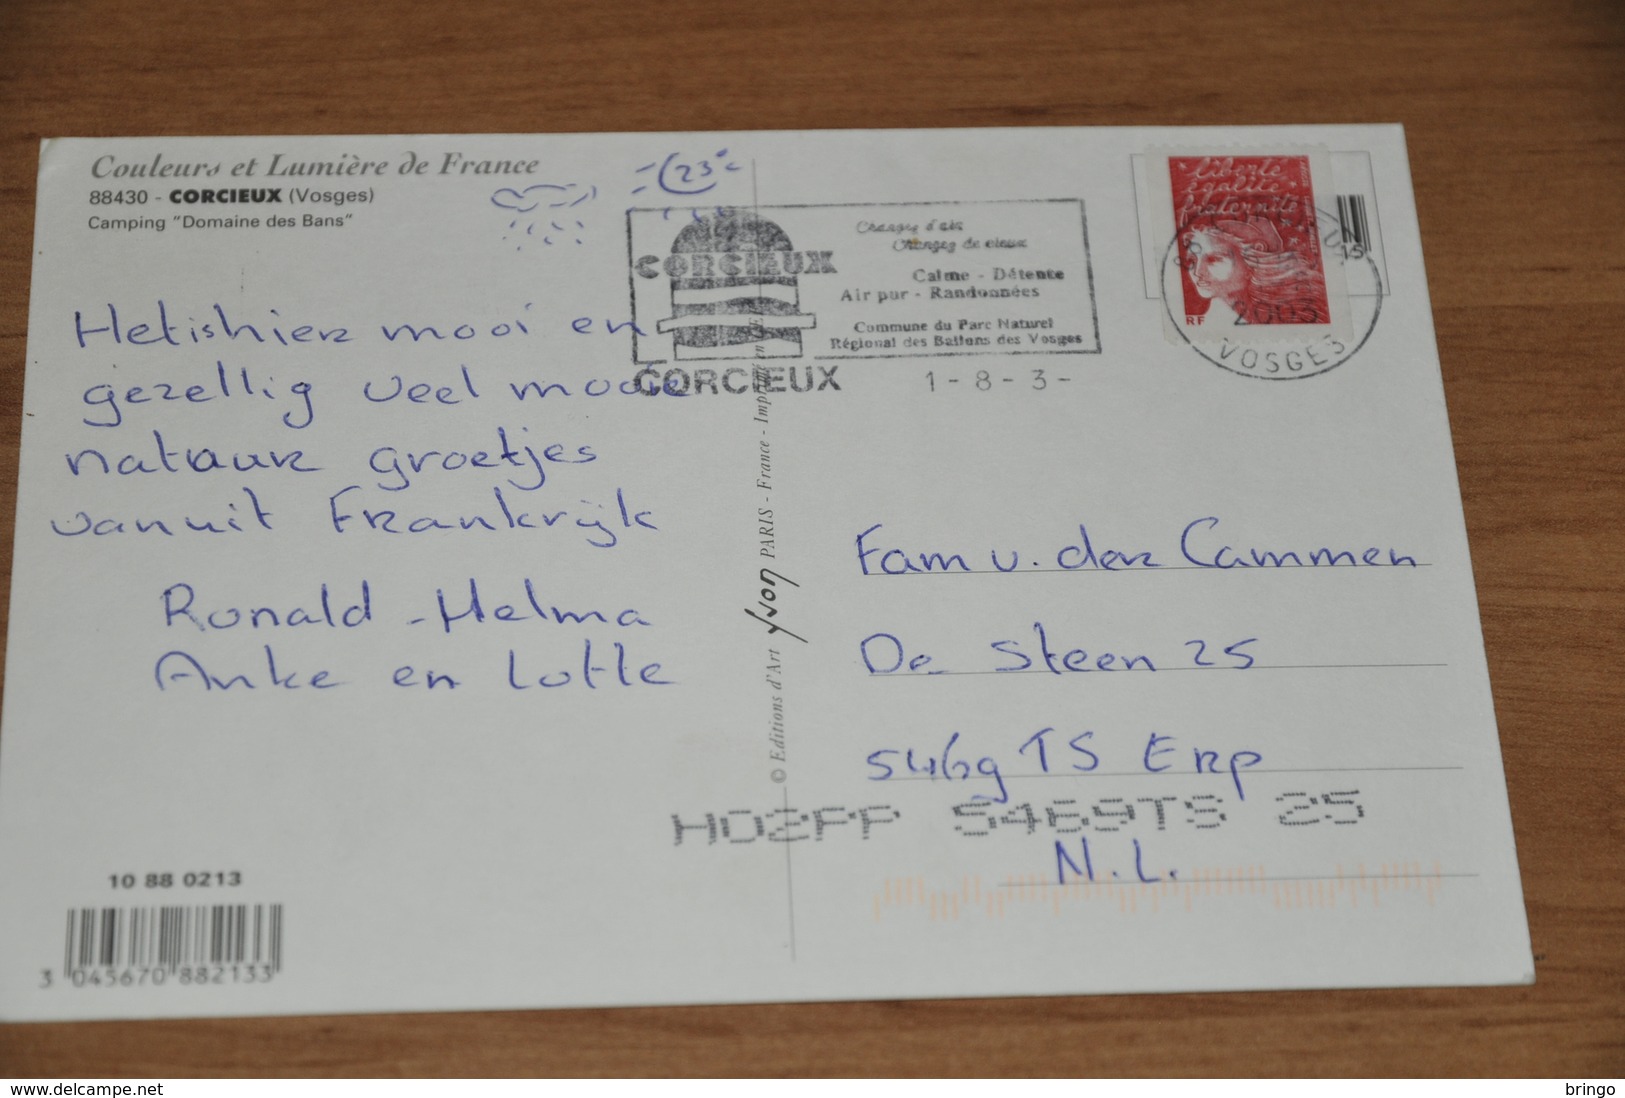 Couleurs et Lumière de France
88430 - CORCIEUX (Vosges)
Camping "Domaine des Bans"
23°
Het is hier mooi en
gezellig veel mooie
natuur groetjes
vanuit Frankrijk
Ronald - Helma
Anke en Lotte
10 88 0213
3 045670 882133
© Editions d'Art Yvon PARIS - France - Imprimé en
CORCIEUX
Changez d'air
Changez de cieux
Calme - Détente
Air pur - Randonnées
Commune du Parc Naturel
Régional des Ballons des Vosges
CORCIEUX
1 - 8 - 3 -
liberté
égalité
fraternité
RF
15
88
2003
VOSGES
Fam v. der Cammen
De Steen 25
5469 TS Erp
HD2PP 5469TS 25
N.L.
www.delcampe.net
bringo